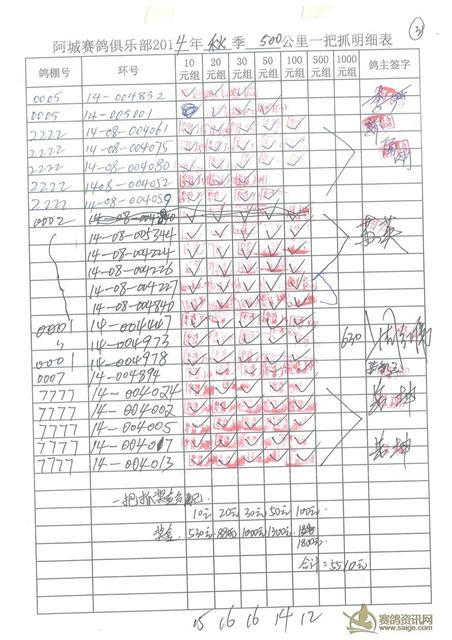 ③
阿城赛鸽俱乐部2014年 秋 季 500公里一把抓明细表
鸽棚号 环号 10元组 20元组 30元组 50元组 100元组 500元组 1000元组 鸽主签字
0005 14-004832 ✓ ✓ ✓
0005 14-005001 ✓ ✓ ✓
2222 14-08-004061 ✓ ✓ ✓ ✓ ✓
2222 14-08-004075 ✓ ✓ ✓ ✓ ✓
2222 14-08-004080 ✓ ✓ ✓ ✓ ✓
2222 1408-004052 ✓ ✓ ✓
2222 14-08-004059 ✓ ✓ ✓ ✓
0002
14-08-005344 ✓ ✓ ✓ ✓ ✓
14-08-004224 ✓ ✓ ✓ ✓ ✓
14-08-004226 ✓ ✓ ✓ ✓ ✓
14-08-004227 ✓ ✓ ✓ ✓ ✓
14-08-004840 ✓ ✓ ✓ ✓ ✓
0001 14-004447 ✓ ✓ ✓ ✓ ✓ 630
〃 14-004973 ✓ ✓ ✓ ✓ ✓
0001 14-004978 ✓ ✓ ✓ ✓ ✓
0007 14-004894 ✓ ✓ ✓ ✓
7777 14-004024 ✓ ✓ ✓ ✓ ✓
7777 14-004002 ✓ ✓ ✓ ✓ ✓
7777 14-004005 ✓ ✓ ✓ ✓ ✓
7777 14-004017 ✓ ✓ ✓ ✓ ✓
7777 14-004013 ✓ ✓ ✓ ✓ ✓
一把抓奖金
10元 20元 30元 50元 100元
奖金 530元 1000元 1300元
1800元
合计:5510元
15 16 16 14 12
赛鸽资讯网
www.saige.com